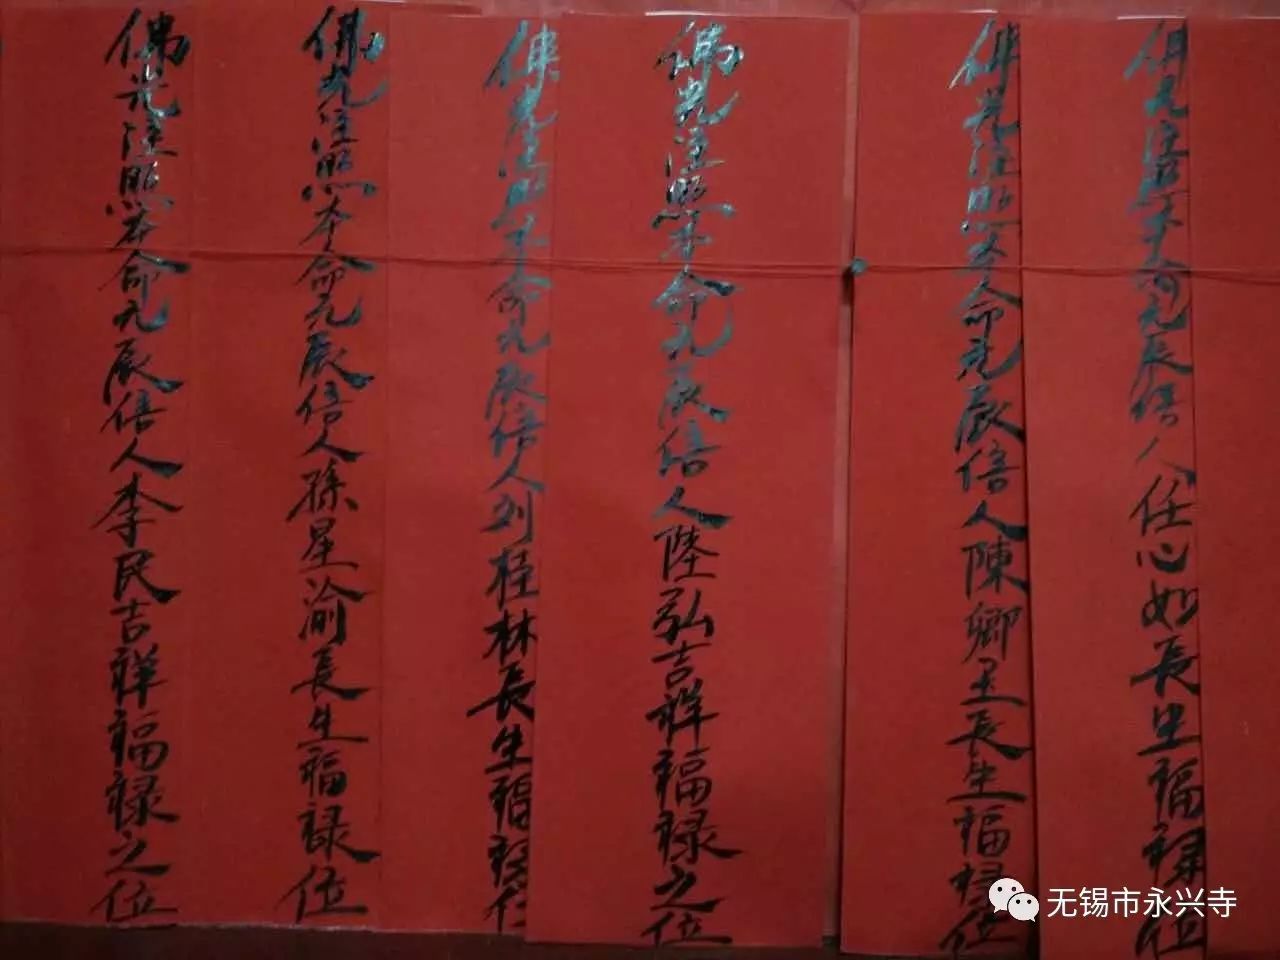 佛光注照本命元辰信人任心如長生福祿位
佛光注照本命元辰信人陳卿玉長生福祿位
佛光注照本命元辰信人陸弘吉祥福祿之位
佛光注照本命元辰信人刘桂林長生福祿位
佛光注照本命元辰信人孫星渝長生福祿位
佛光注照本命元辰信人李民吉祥福祿之位
无锡市永兴寺